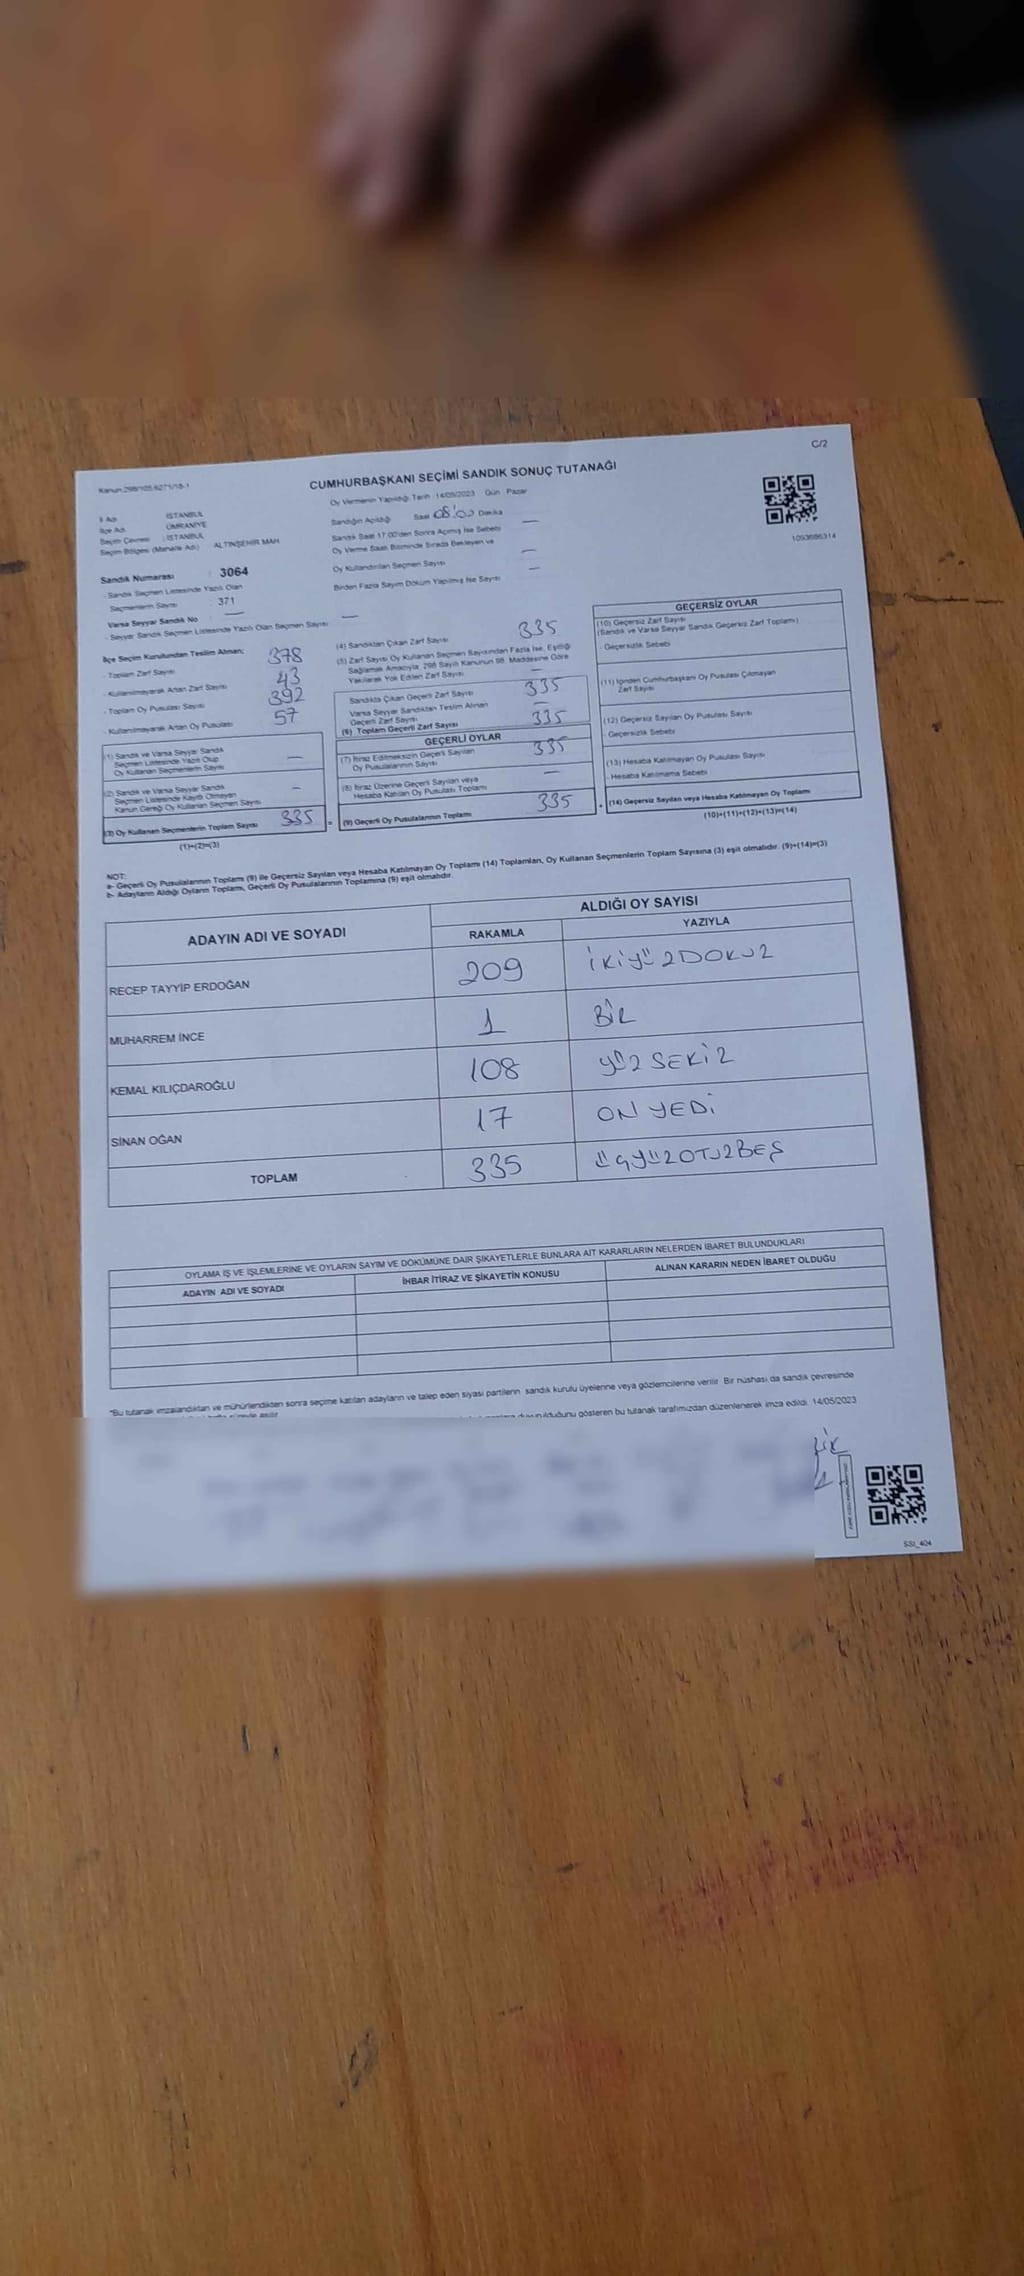 C/2
CUMHURBAŞKANI SEÇİMİ SANDIK SONUÇ TUTANAĞI
Kanun:298/105,6271/18-1
Oy Vermenin Yapıldığı Tarih : 14/05/2023 Gün : Pazar
İl Adı : İSTANBUL
İlçe Adı : ÜMRANİYE
Seçim Çevresi : İSTANBUL
Seçim Bölgesi (Mahalle Adı) : ALTINŞEHİR MAH
Sandığın Açıldığı Saat 08:00 Dakika
Sandık Saat 17:00'den Sonra Açılmış İse Sebebi —
Oy Verme Saati Bitiminde Sırada Bekleyen ve
Oy Kullandırılan Seçmen Sayısı —
Birden Fazla Sayım Döküm Yapılmış İse Sayısı —
1093686314
Sandık Numarası : 3064
- Sandık Seçmen Listesinde Yazılı Olan
Seçmenlerin Sayısı : 371
Varsa Seyyar Sandık No : —
- Seyyar Sandık Seçmen Listesinde Yazılı Olan Seçmen Sayısı : —
İlçe Seçim Kurulundan Teslim Alınan;
- Toplam Zarf Sayısı : 378
- Kullanılmayarak Artan Zarf Sayısı : 43
- Toplam Oy Pusulası Sayısı : 392
- Kullanılmayarak Artan Oy Pusulası : 57
(1) Sandık ve Varsa Seyyar Sandık
Seçmen Listesinde Yazılı Olup
Oy Kullanan Seçmenlerin Sayısı —
(2) Sandık ve Varsa Seyyar Sandık
Seçmen Listesinde Kayıtlı Olmayan
Kanun Gereği Oy Kullanan Seçmen Sayısı —
(3) Oy Kullanan Seçmenlerin Toplam Sayısı 335
(1)+(2)=(3)
(4) Sandıktan Çıkan Zarf Sayısı 335
(5) Zarf Sayısı Oy Kullanan Seçmen Sayısından Fazla İse, Eşitliği
Sağlamak Amacıyla, 298 Sayılı Kanunun 98. Maddesine Göre
Yakılarak Yok Edilen Zarf Sayısı —
Sandıkta Çıkan Geçerli Zarf Sayısı 335
Varsa Seyyar Sandıktan Teslim Alınan
Geçerli Zarf Sayısı —
(6) Toplam Geçerli Zarf Sayısı 335
GEÇERLİ OYLAR
(7) İtiraz Edilmeksizin Geçerli Sayılan
Oy Pusulalarının Sayısı 335
(8) İtiraz Üzerine Geçerli Sayılan veya
Hesaba Katılan Oy Pusulası Toplamı —
(9) Geçerli Oy Pusulalarının Toplamı 335
GEÇERSİZ OYLAR
(10) Geçersiz Zarf Sayısı
(Sandık ve Varsa Seyyar Sandık Geçersiz Zarf Toplamı)
- Geçersizlik Sebebi
(11) İçinden Cumhurbaşkanı Oy Pusulası Çıkmayan
Zarf Sayısı
(12) Geçersiz Sayılan Oy Pusulası Sayısı
- Geçersizlik Sebebi
(13) Hesaba Katılmayan Oy Pusulası Sayısı
- Hesaba Katılmama Sebebi
(14) Geçersiz Sayılan veya Hesaba Katılmayan Oy Toplamı
(10)+(11)+(12)+(13)=(14)
NOT:
a- Geçerli Oy Pusulalarının Toplamı (9) ile Geçersiz Sayılan veya Hesaba Katılmayan Oy Toplamı (14) Toplamları, Oy Kullanan Seçmenlerin Toplam Sayısına (3) eşit olmalıdır. (9)+(14)=(3)
b- Adayların Aldığı Oyların Toplamı, Geçerli Oy Pusulalarının Toplamına (9) eşit olmalıdır.
ADAYIN ADI VE SOYADI
ALDIĞI OY SAYISI
RAKAMLA YAZIYLA
RECEP TAYYİP ERDOĞAN 209 İKİYÜZDOKUZ
MUHARREM İNCE 1 BİR
KEMAL KILIÇDAROĞLU 108 YÜZ SEKİZ
SİNAN OĞAN 17 ON YEDİ
TOPLAM 335 ÜÇYÜZOTUZBEŞ
OYLAMA İŞ VE İŞLEMLERİNE VE OYLARIN SAYIM VE DÖKÜMÜNE DAİR ŞİKAYETLERLE BUNLARA AİT KARARLARIN NELERDEN İBARET BULUNDUKLARI
ADAYIN ADI VE SOYADI İHBAR İTİRAZ VE ŞİKAYETİN KONUSU ALINAN KARARIN NEDEN İBARET OLDUĞU
"Bu tutanak imzalandıktan ve mühürlendikten sonra seçime katılan adayların ve talep eden siyasi partilerin sandık kurulu üyelerine veya gözlemcilerine verilir. Bir nüshası da sandık çevresinde
duyurulduğunu gösteren bu tutanak tarafımızdan düzenlenerek imza edildi. 14/05/2023
SSI_404